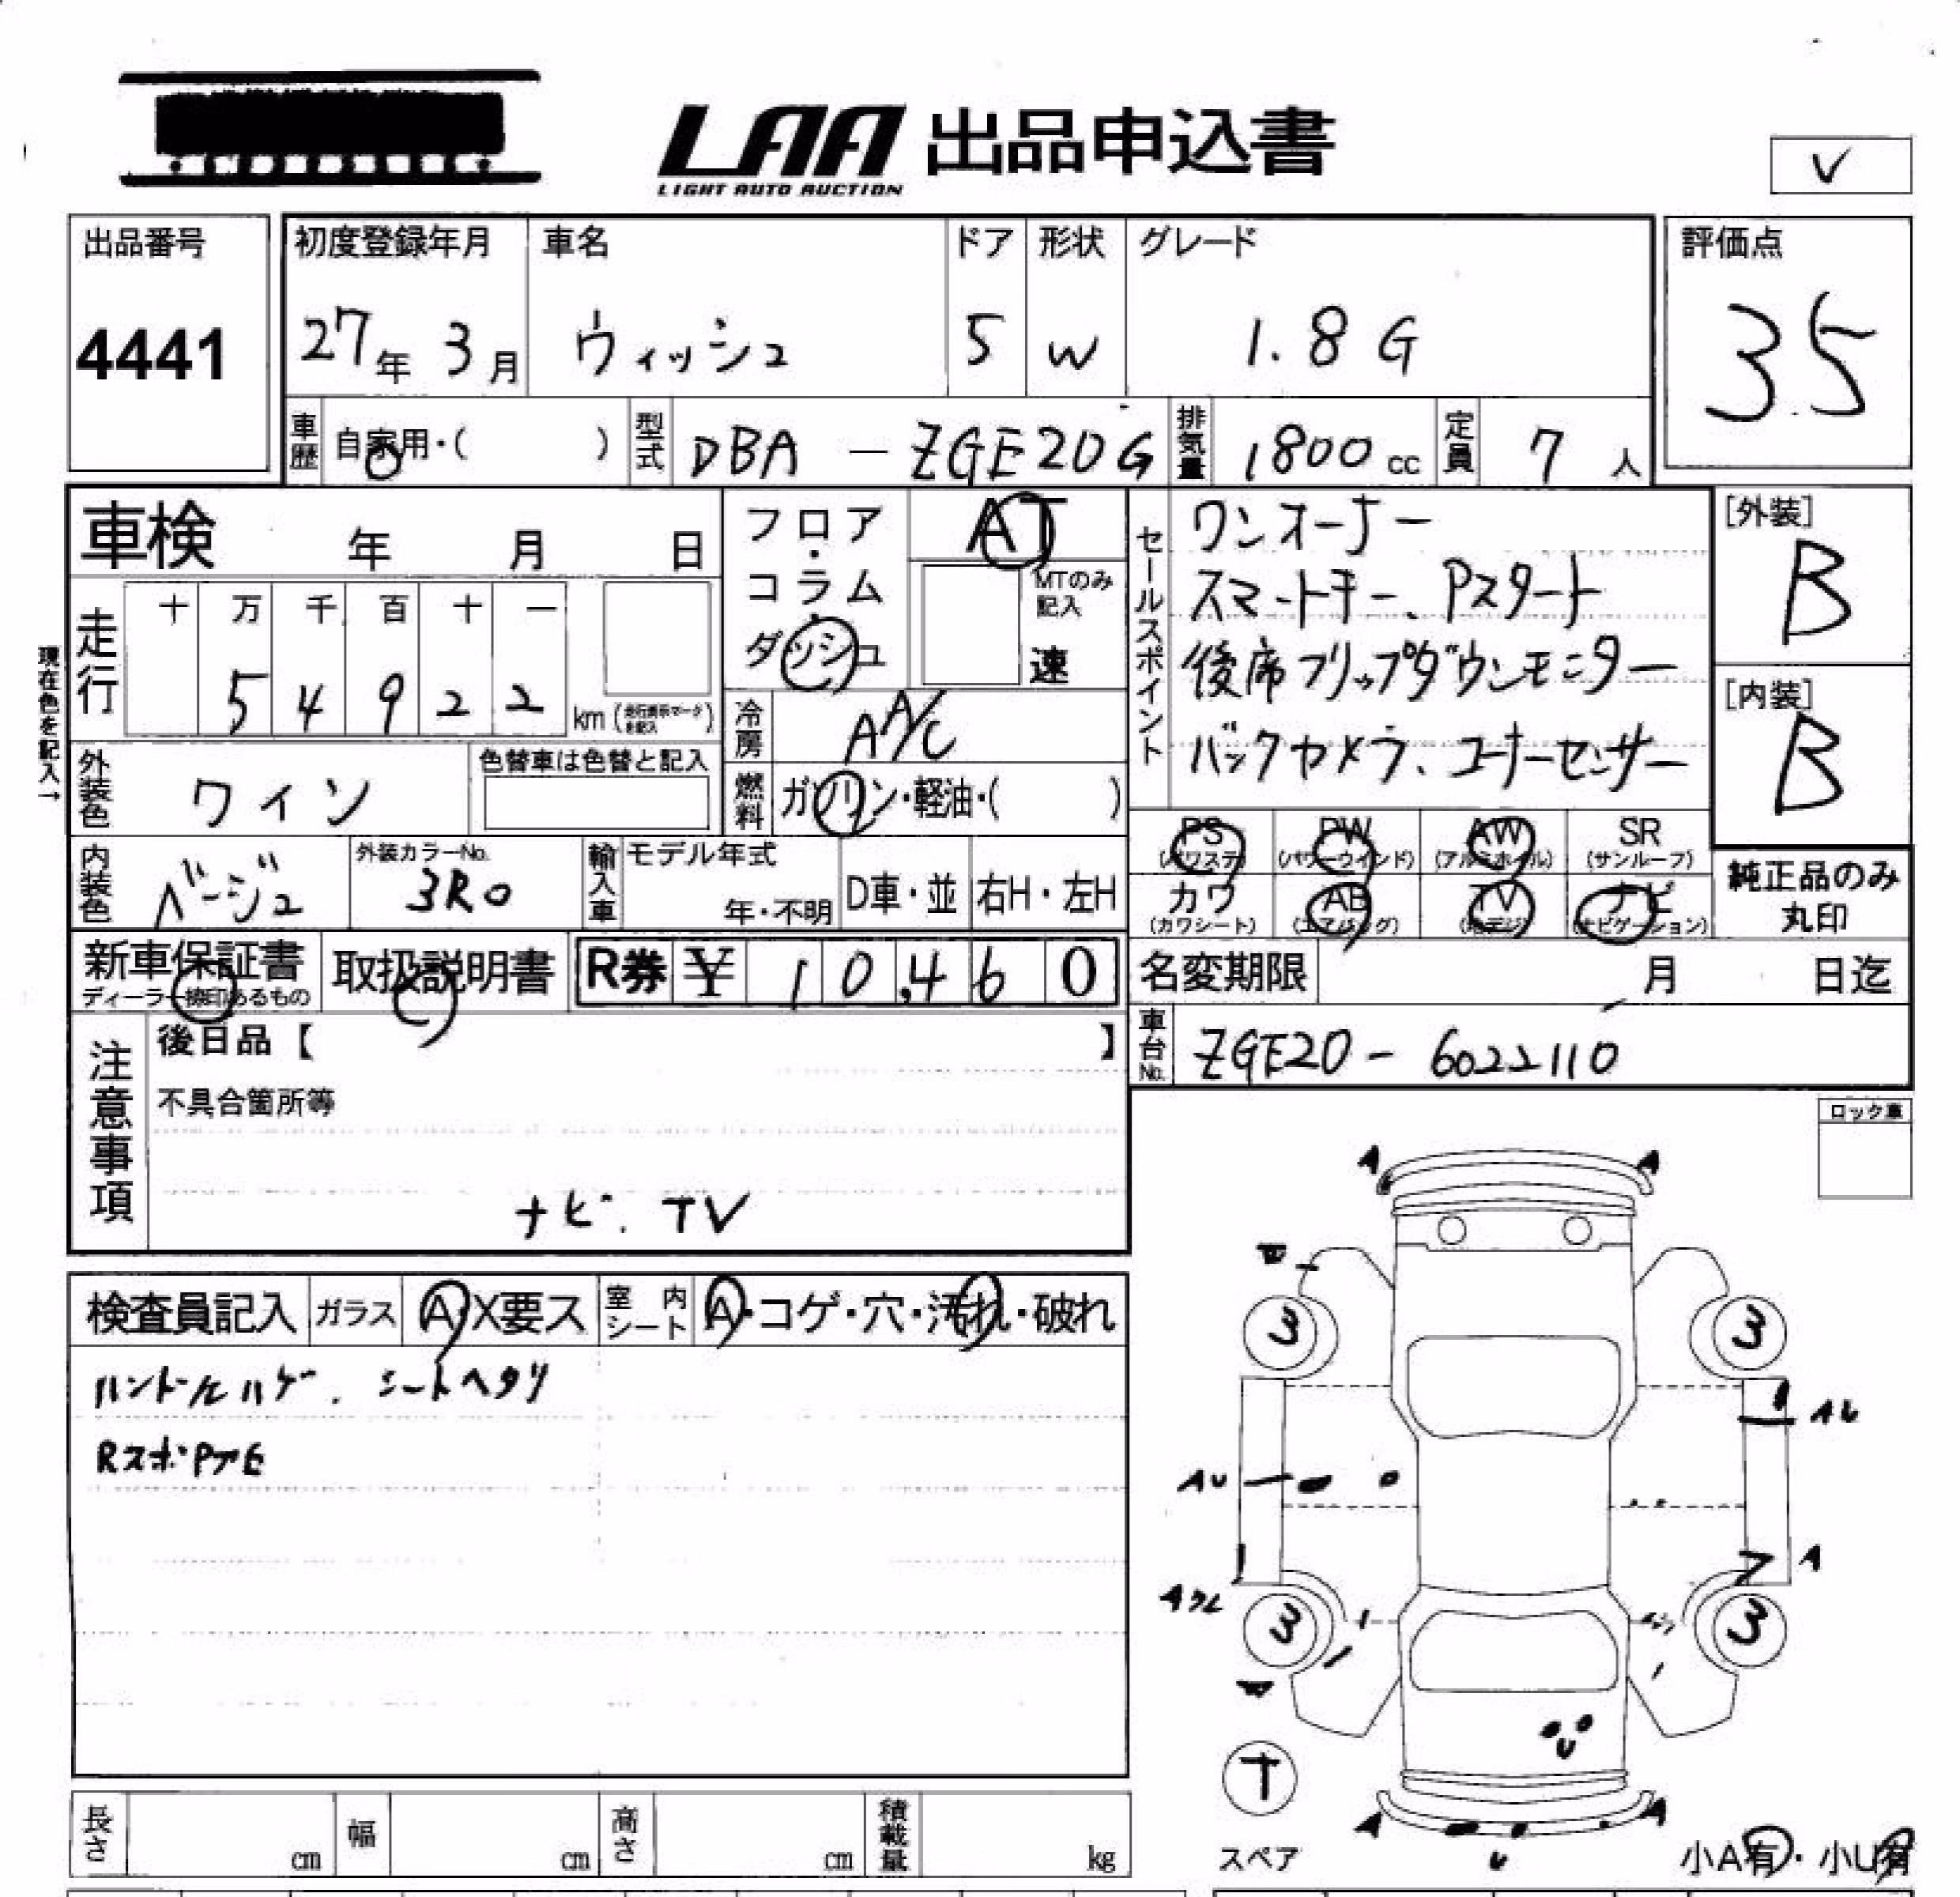 LAA 出品申込書
LIGHT AUTO AUCTION
V
出品番号
4441
初度登録年月
27年 3月
車名
ウィッシュ
ドア
5
形状
W
グレード
1.8 G
評価点
3.5
車歴
自家用・( )
型式
DBA - ZGE20G
排気量
1800 cc
定員
7 人
車検 年 月 日
フロア・コラム・ダッシュ
AT
MTのみ記入
速
セールスポイント
ワンオーナー
スマートキー、Pスタート
後席フリップダウンモニター
バックカメラ、コーナーセンサー
[外装]
B
[内装]
B
現在色を記入→
走行
十 万 千 百 十 一
5 4 9 2 2 km
冷房
A A/C
外装色
ワイン
色替車は色替と記入
燃料
ガソリン・軽油・( )
内装色
ベージュ
外装カラーNo.
3R0
輸入車
モデル年式
年・不明
D車・並
右H・左H
PS (パワステ)
PW (パワーウインド)
AW (アルミホイル)
SR (サンルーフ)
カワ (カワシート)
AB (エアバッグ)
TV (地デジ)
ナビ (ナビゲーション)
純正品のみ丸印
新車保証書
ディーラー捺印あるもの
取扱説明書
R券 ¥ 10,460
名変期限 月 日迄
車台No.
ZGE20 - 6022110
注意事項
後日品【 】
不具合箇所等
ナビ、TV
ロック車
検査員記入
ガラス
A・X要ス
室内シート
A・コゲ・穴・汚れ・破れ
ハンドルハゲ、シートヘタリ
RスポPアE
A A
3 3
AU
AU
A
3 3
T
スペア
U
A A
U
小A有・小U有
長さ cm
幅 cm
高さ cm
積載量 kg